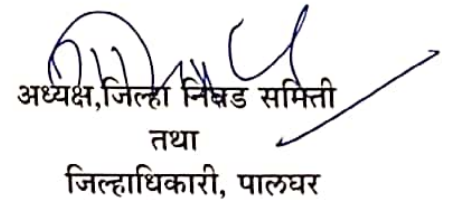 अध्यक्ष,जिल्हा निवड समिती
तथा
जिल्हाधिकारी, पालघर